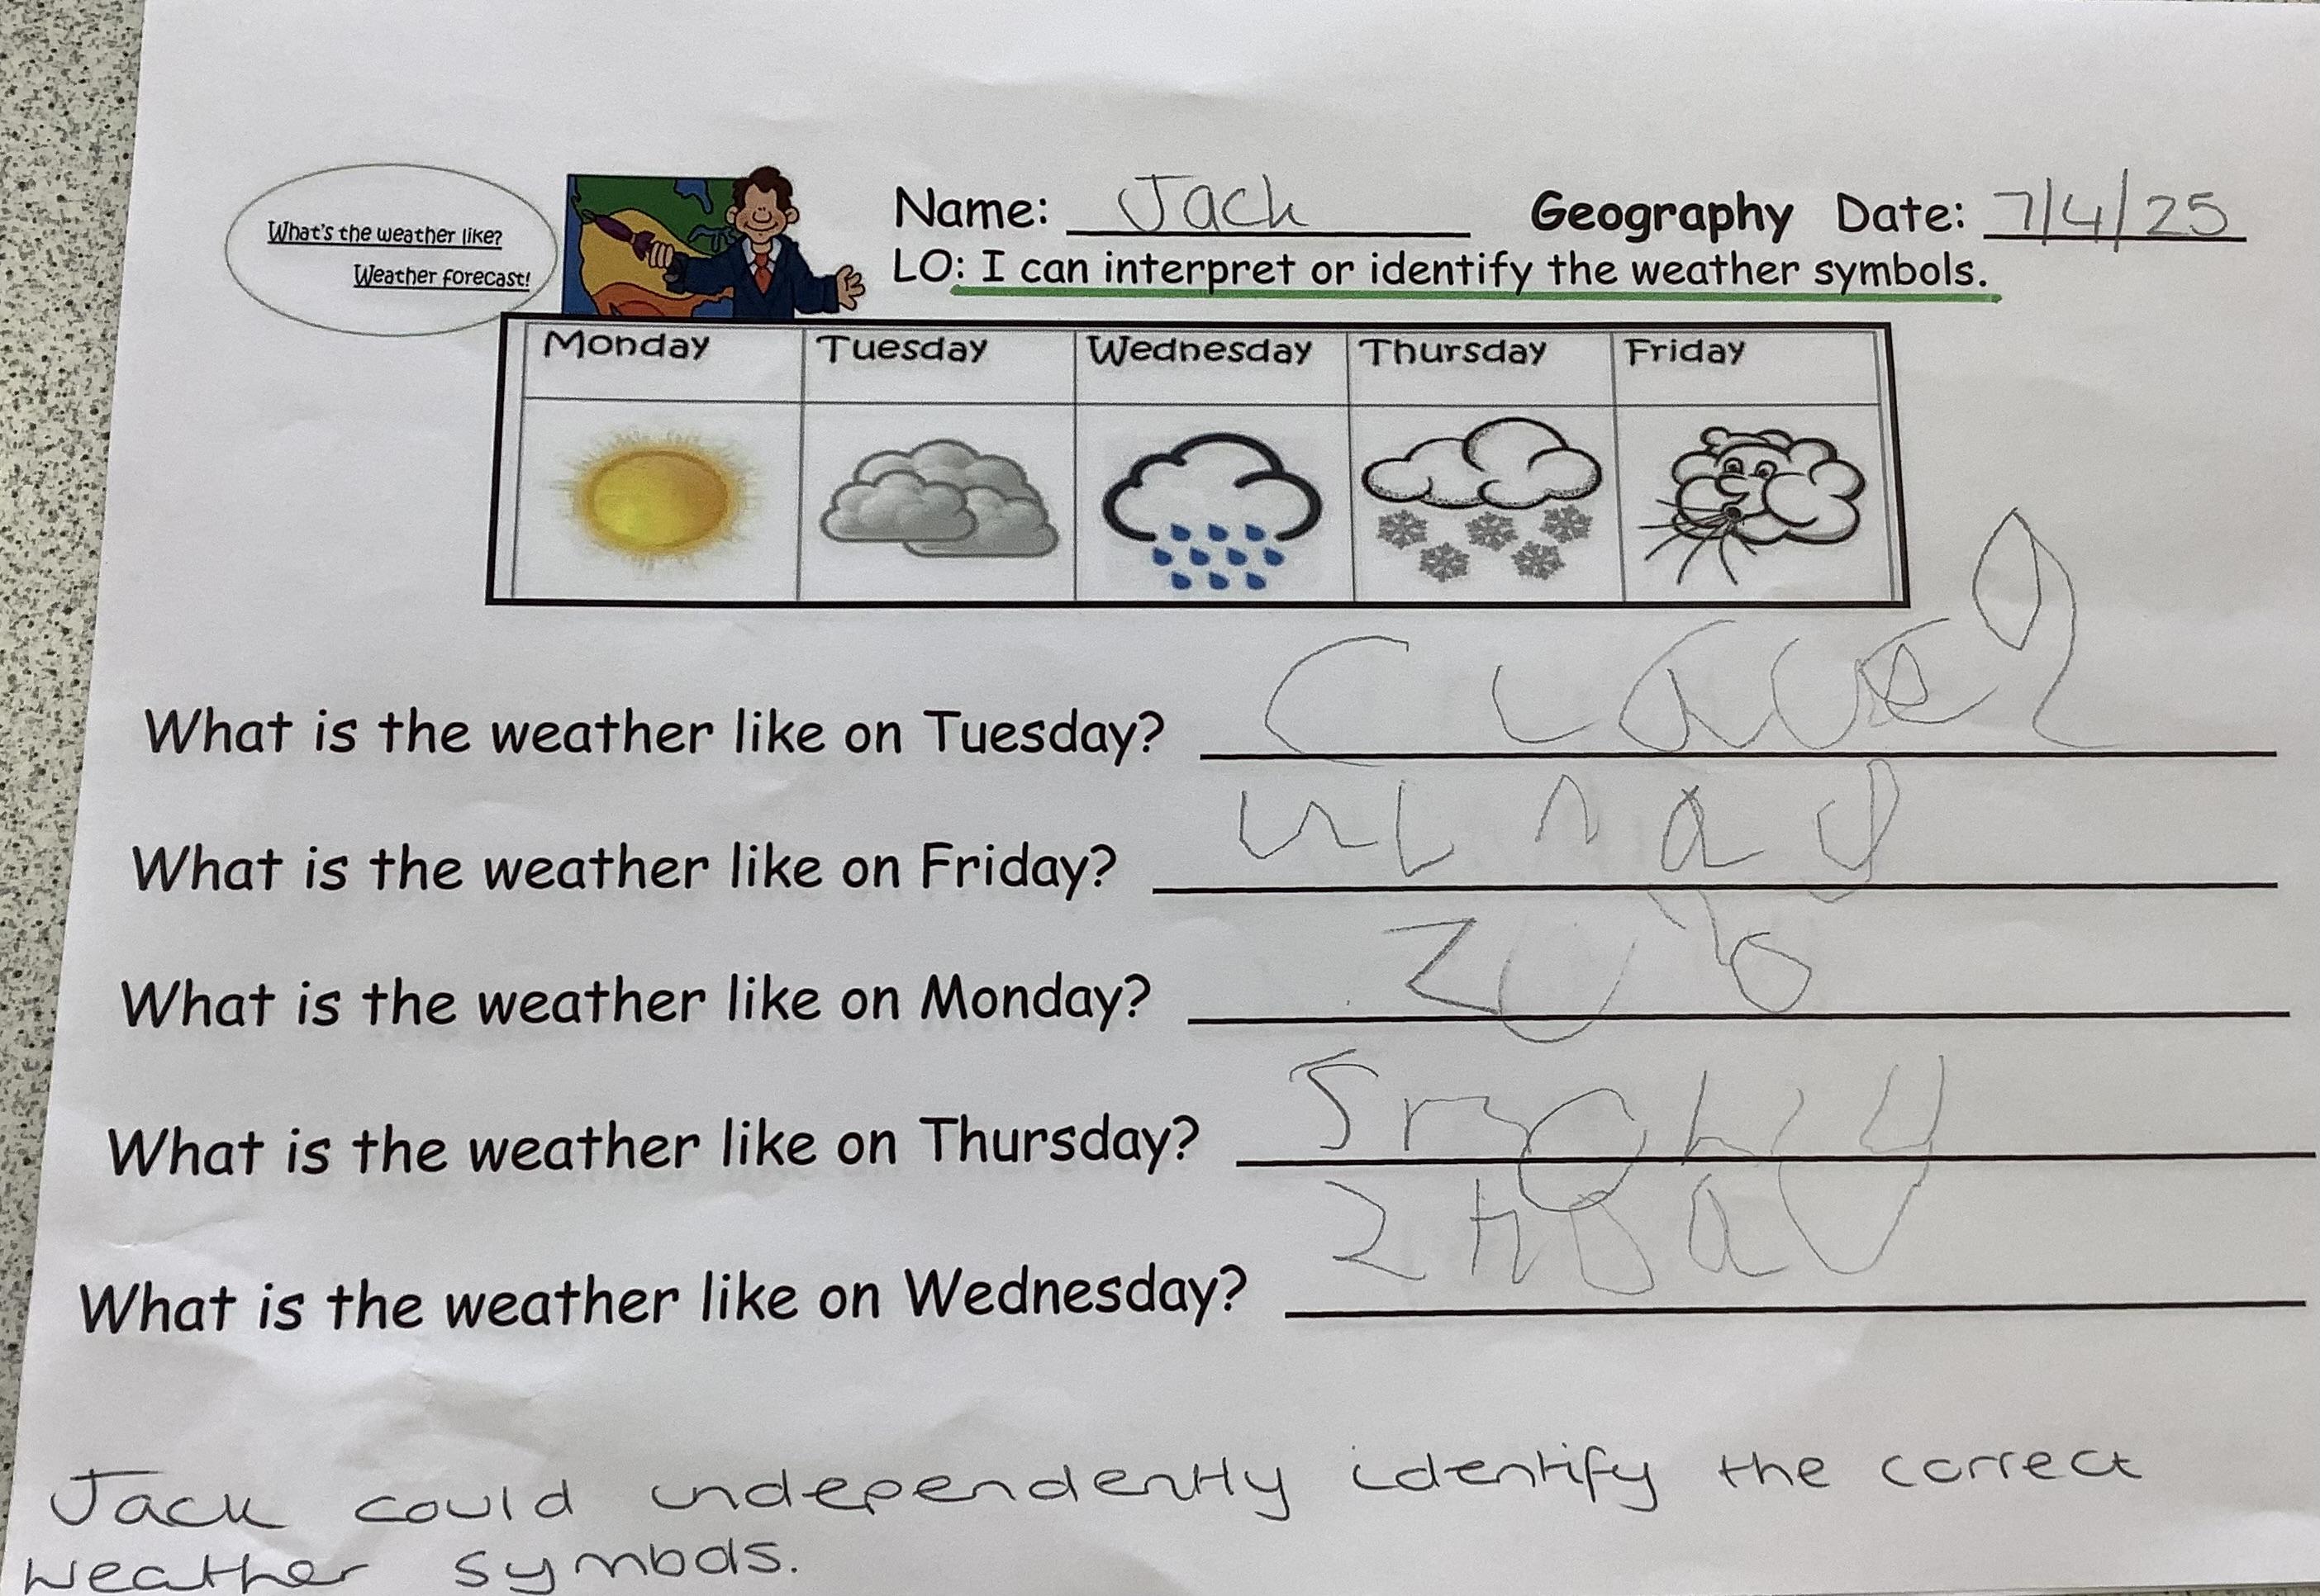 What's the weather like?
Weather forecast!
Name: Jack Geography Date: 7/4/25
LO: I can interpret or identify the weather symbols.
Monday Tuesday Wednesday Thursday Friday
What is the weather like on Tuesday?
What is the weather like on Friday?
What is the weather like on Monday?
What is the weather like on Thursday?
What is the weather like on Wednesday?
Jack could independently identify the correct
weather symbols.